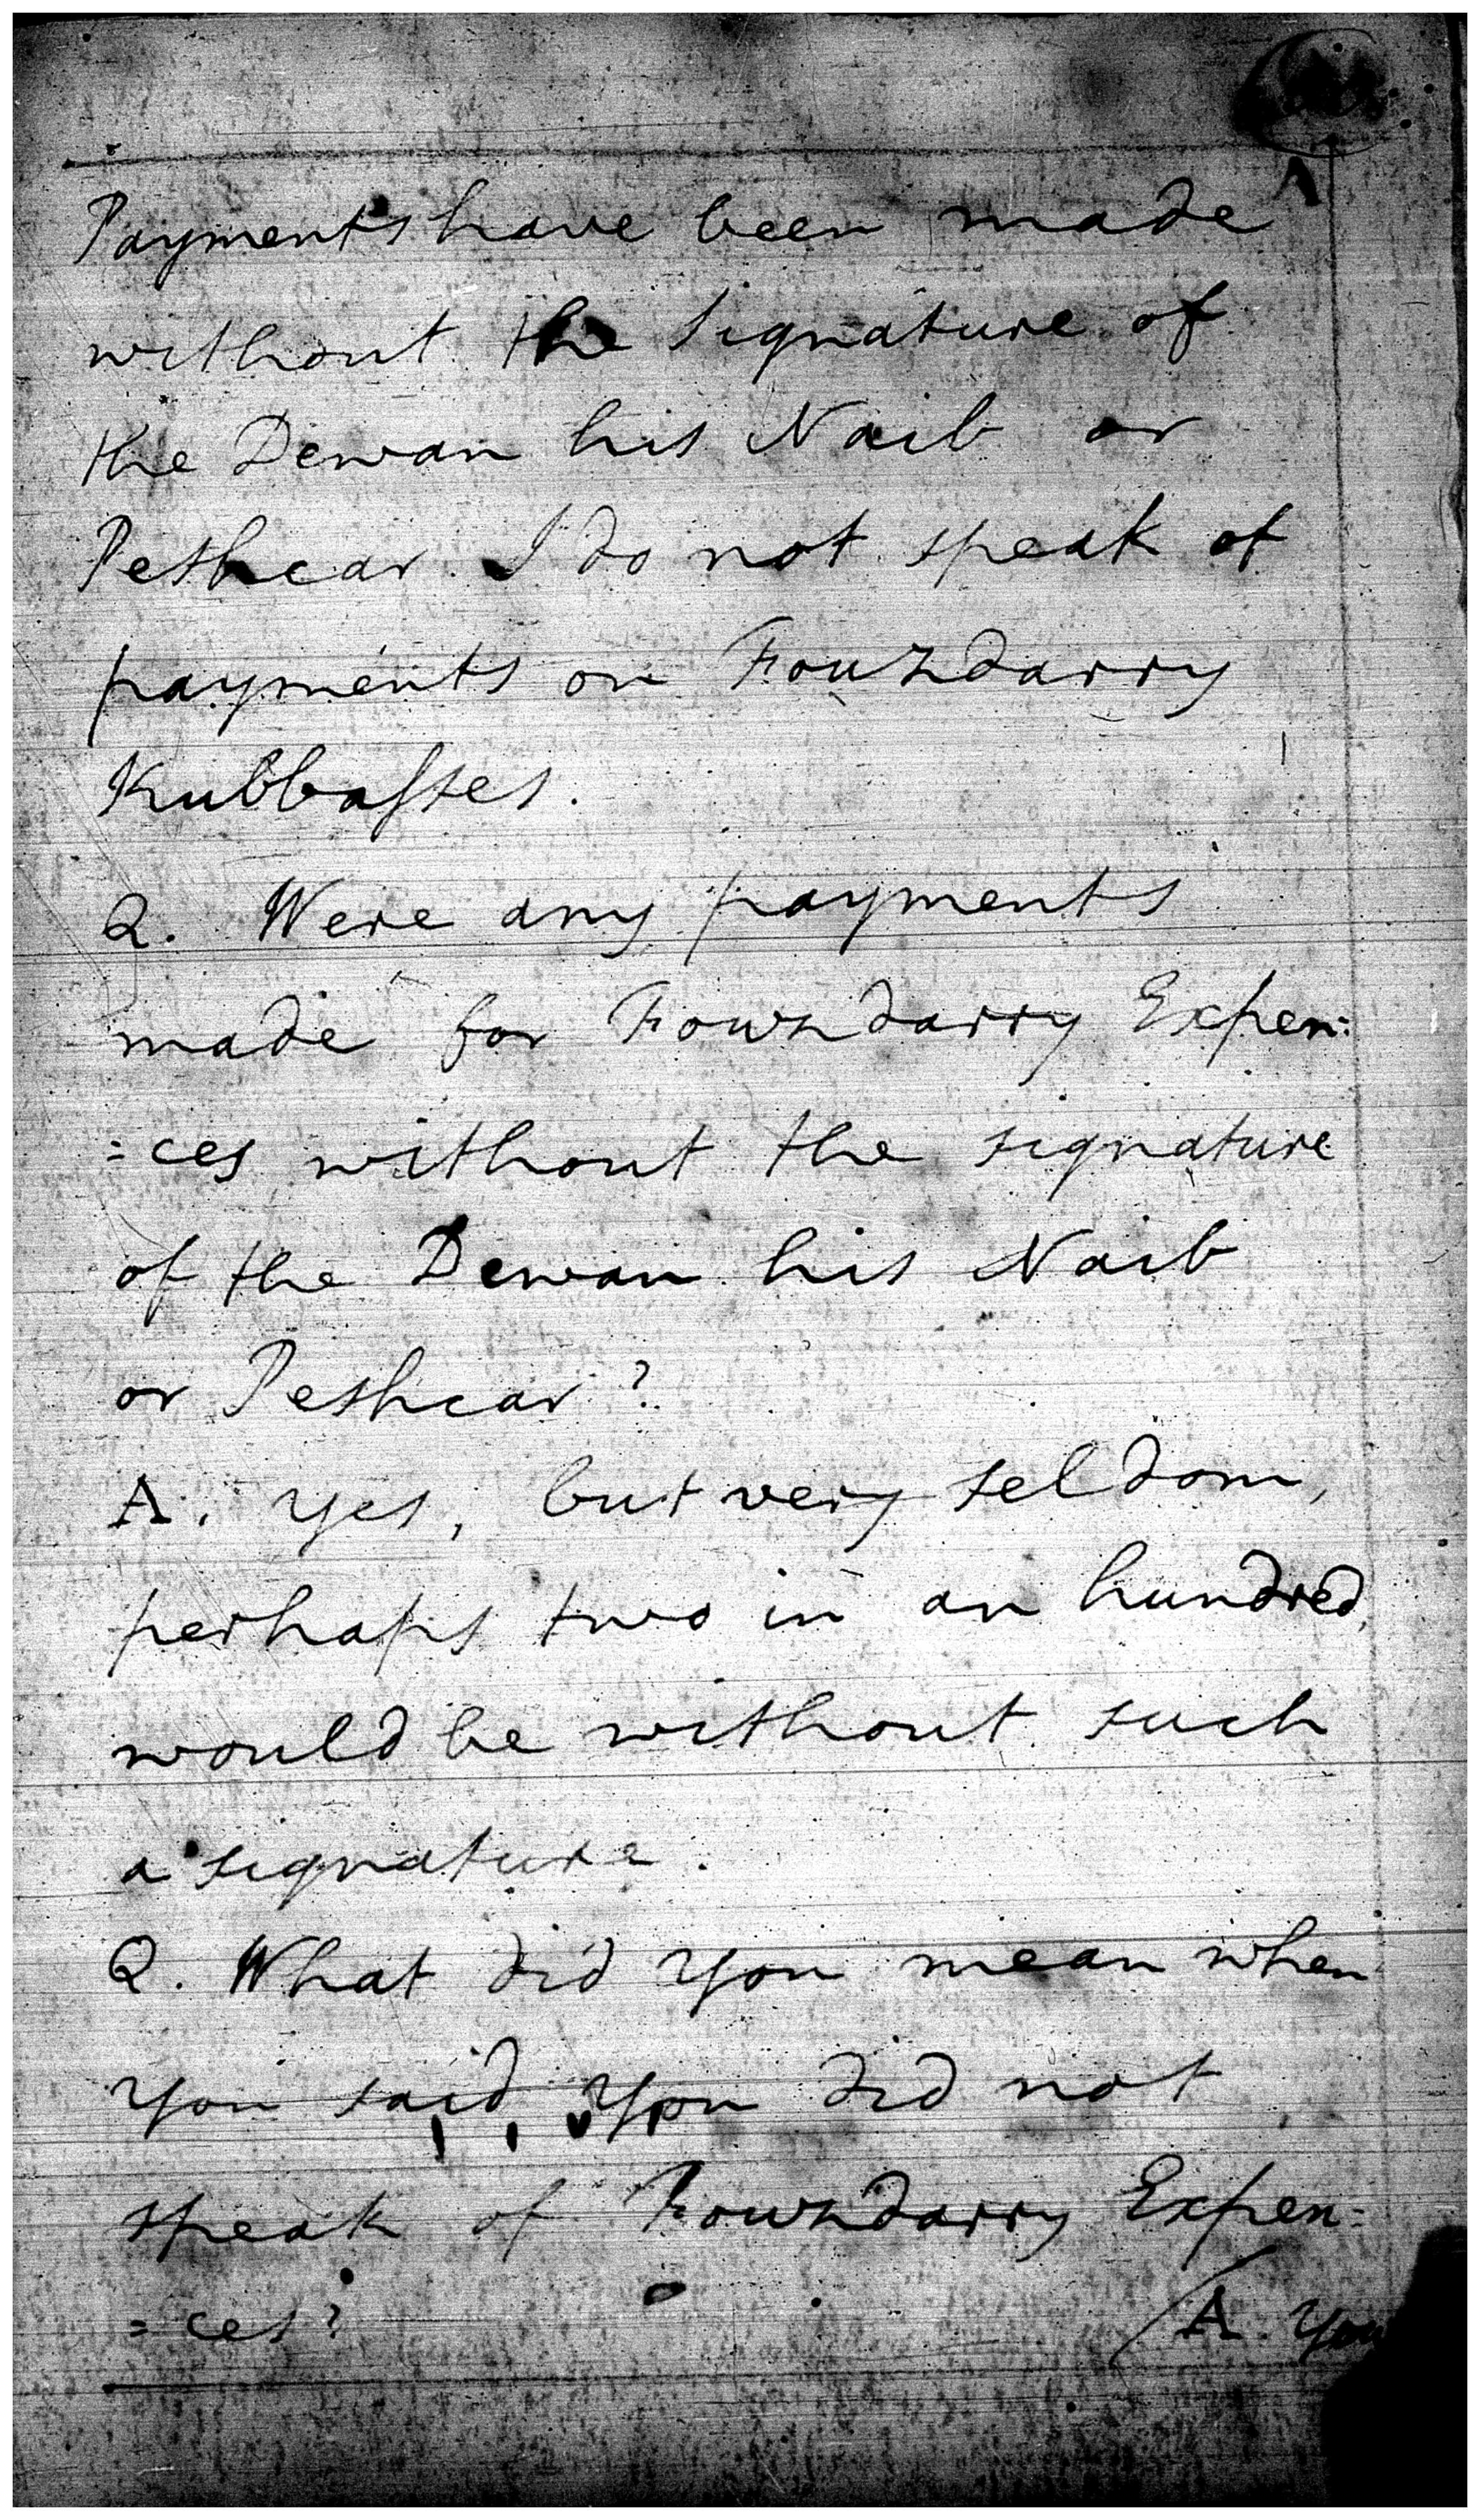 Payments have been made
without the signature of
the Dewan his Naib or
Peshcar I do not speak of
payments on Fouzdarry
Kubbaſses.
Q. Were any payments
made for Fouzdarry Expen=
=ces without the signature
of the Dewan his Naib
or Peshcar?
A. Yes, but very seldom,
perhaps two in an hundred,
would be without such
a signature.
Q. What did you mean when
you said you did not
speak of Fouzdarry Expen=
=ces?
A. You